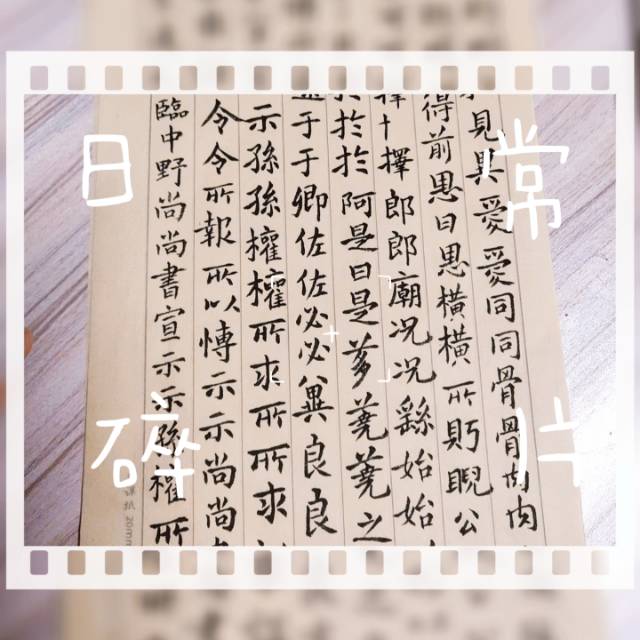 日常
碎片
見具愛愛同同骨骨肉肉
得前恩曰恩橫橫所睨公
擇十擇郎郎廟況況繇始始
於於阿是曰是芻蕘蕘之
于于卿佐佐必必冀良良
示孫孫權權所求所所求
令令所報所以慱示示尚尚
臨中野尚尚書宣示示孫權所